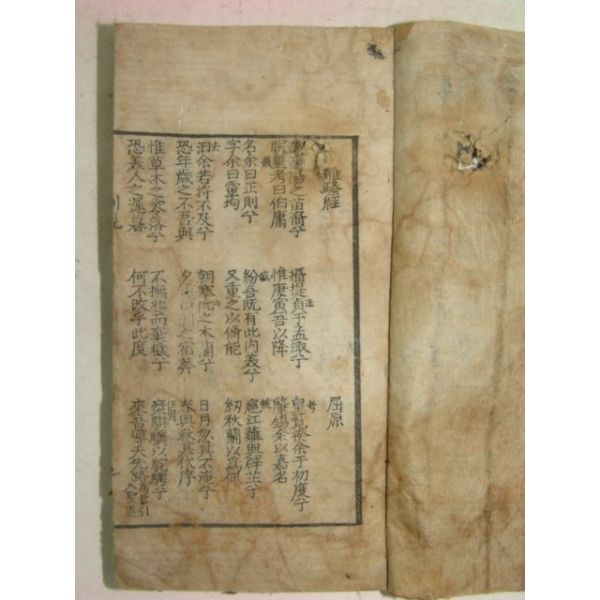 離騷經 屈原
高陽之苗裔兮 攝提貞于孟陬兮 皇覽揆余于初度兮
朕皇考曰伯庸 惟庚寅吾以降 肇錫余以嘉名
名余曰正則兮 紛吾旣有此內美兮 扈江蘺與辟芷兮
字余曰靈均 又重之以脩能 紉秋蘭以爲佩
汩余若將不及兮 朝搴阰之木蘭兮 日月忽其不淹兮
恐年歲之不吾與 夕之宿莽 春與秋其代序
惟草木之零落兮 不撫壯而棄穢兮 乘騏驥以馳騁兮
恐美人之遲暮 何不改乎此度 來吾導夫先路